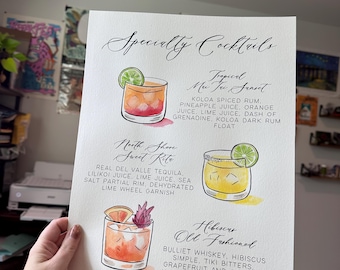 Specialty Cocktails
Tropical
Mai Tai Sunset
KOLOA SPICED RUM,
PINEAPPLE JUICE, ORANGE
JUICE, LIME JUICE, DASH OF
GRENADINE, KOLOA DARK RUM
FLOAT
North Shore
Sweet Rita
REAL DEL VALLE TEQUILA,
LILIKOI JUICE, LIME JUICE, SEA
SALT PARTIAL RIM, DEHYDRATED
LIME WHEEL GARNISH
Hibiscus
Old Fashioned
BULLIET WHISKEY, HIBISCUS
SIMPLE, TIKI BITTERS,
GRAPEFRUIT AND